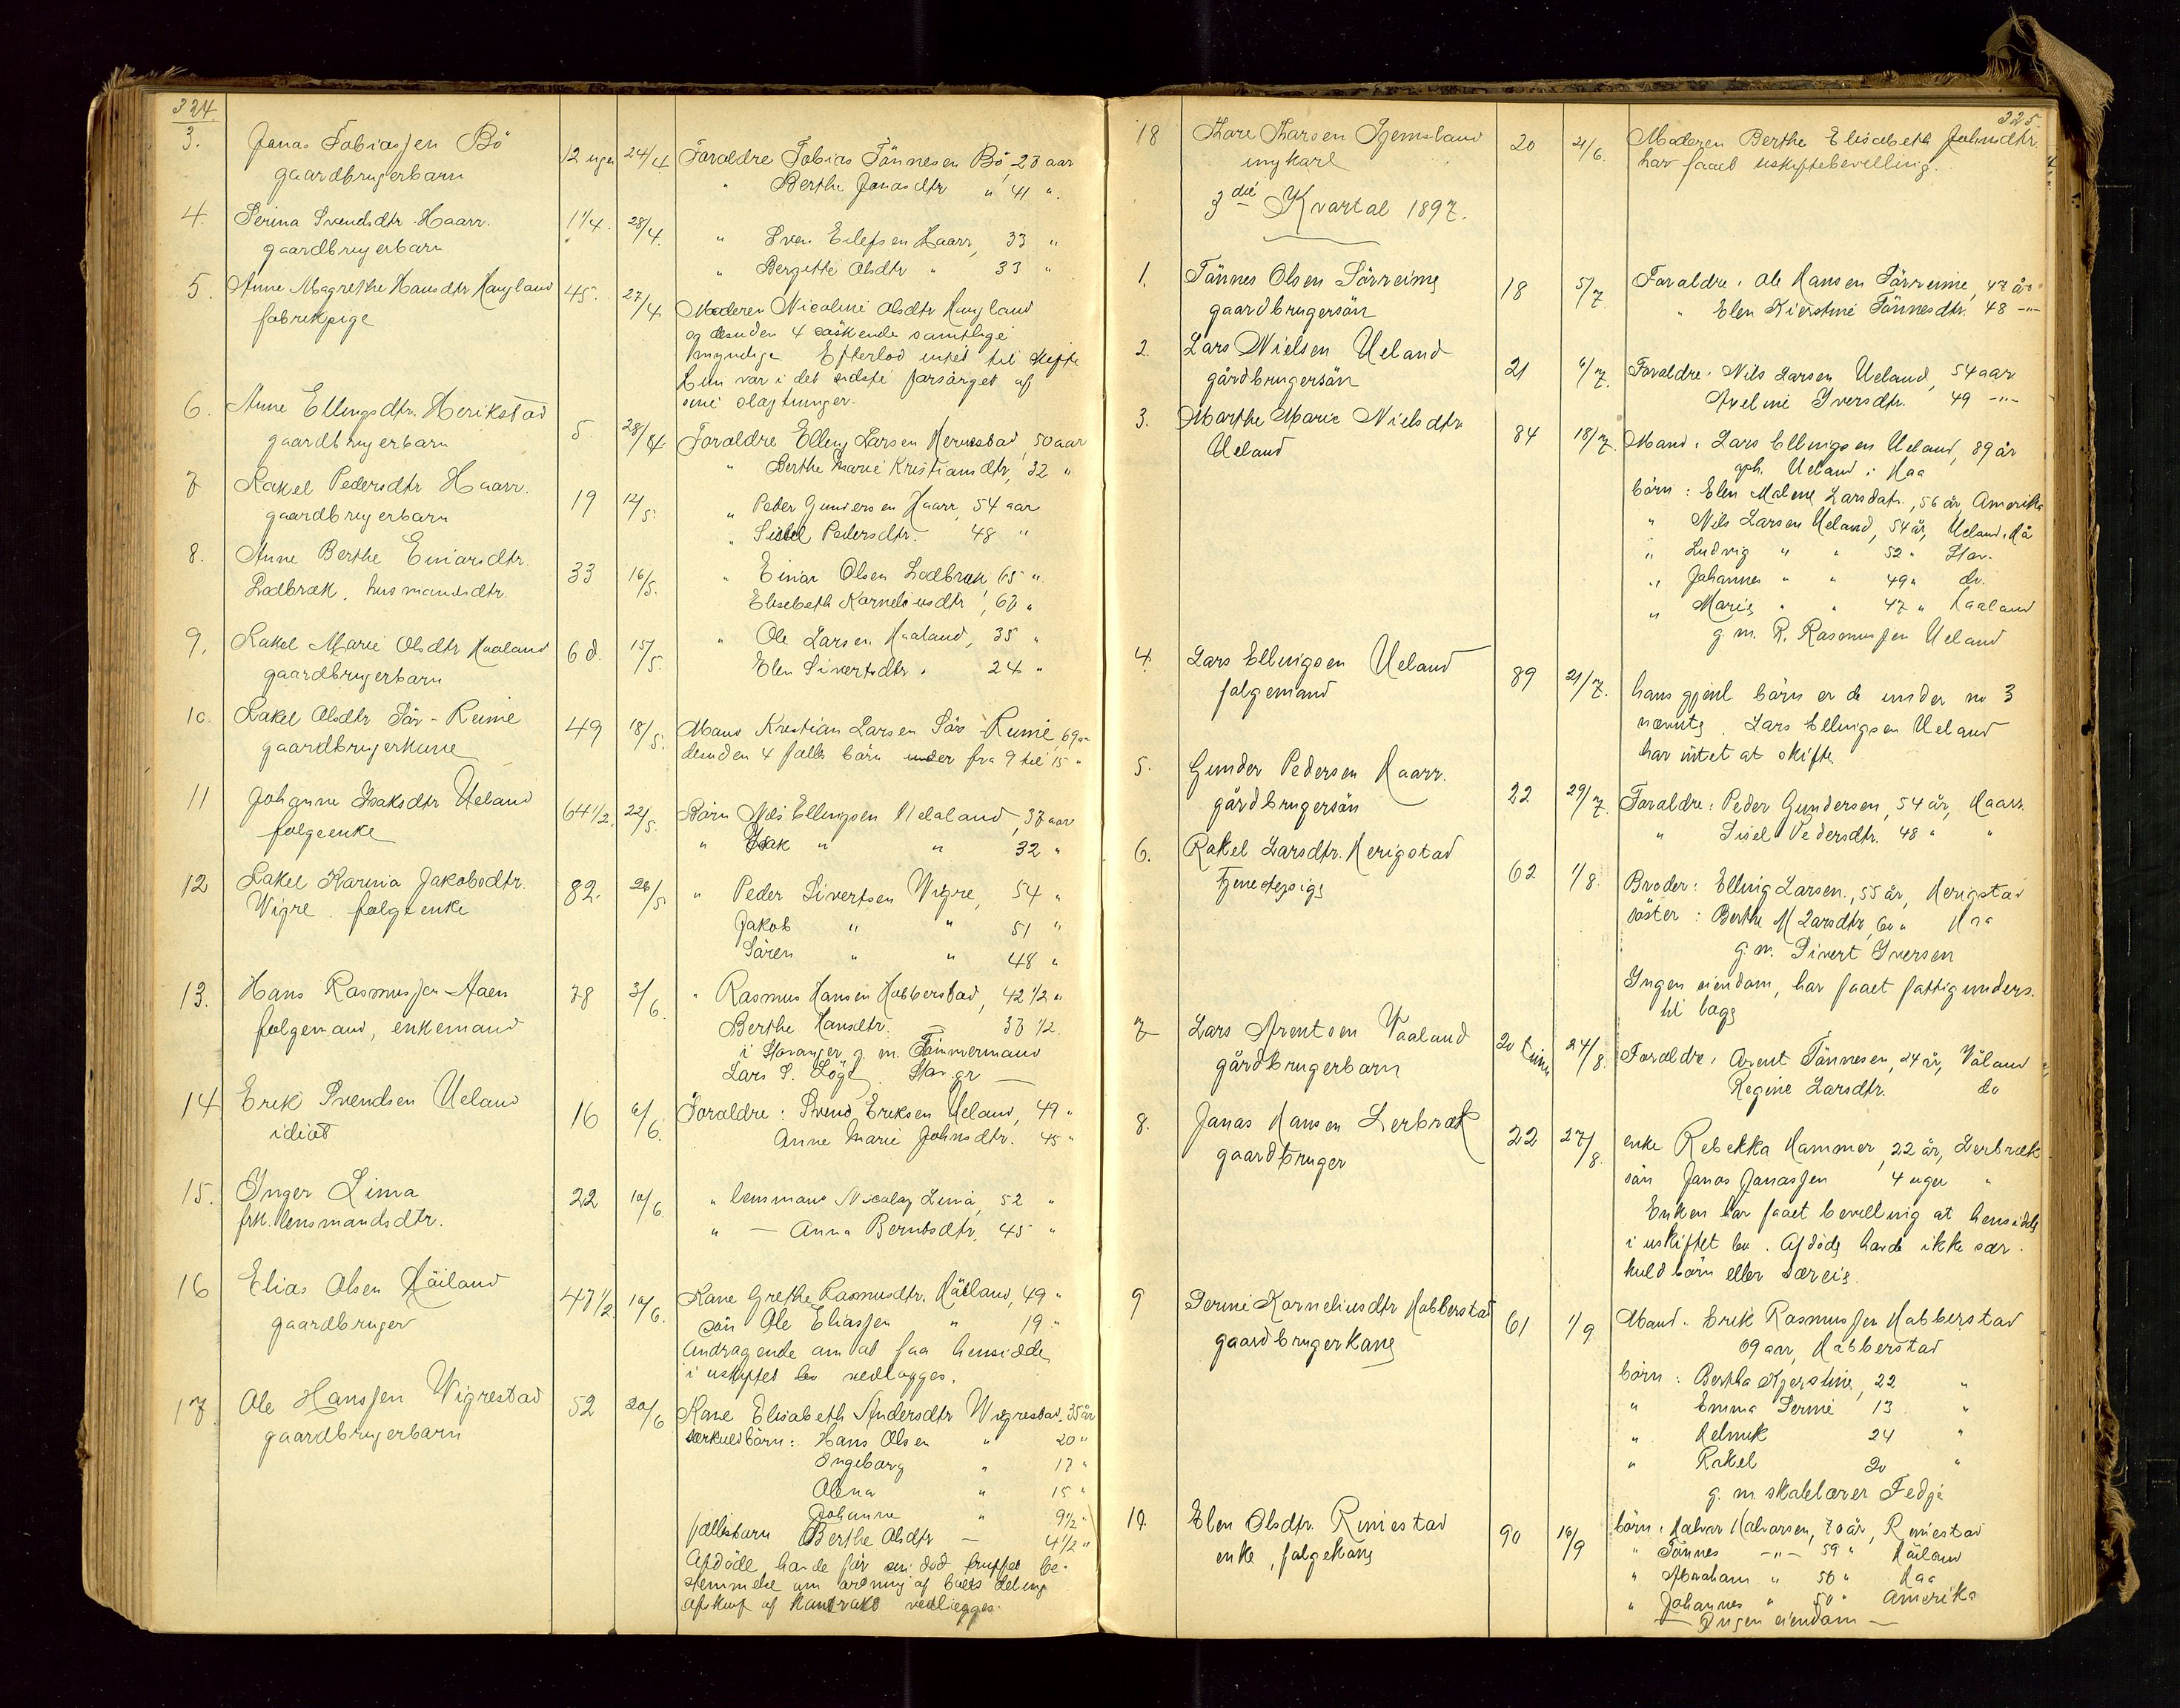 324
3. Jonas Tobiassen Bö 12 uger 24/4 Foraldre Tobias Tönnesen Bö, 23 aar
gaardbrugerbarn " Berthe Jonasdtr " 41 ".
4. Serina Svendsdtr Haarr. 1 1/4. 28/4. " Sven Eilefsen Haarr, 33 "
gaardbrugerbarn " Bergitte Olsdtr " 33 "
5. Anne Magrethe Hansdtr Haugland 45. 27/4 Moderen Nicoline Olsdtr Haugland
fabrikpige og desuden 4 söskende samtlige
myndige Efterlod intet til skifte
Hun var i det sidste forsörget af
sine slagtninger.
6. Anne Ellingsdtr. Herikstad 5 28/4 Foraldre Elling Larsen Herikstad, 50 aar
gaardbrugerbarn " Berthe Marie Kristiansdtr, 32 "
7 Rakel Pedersdtr Haarr. 19 12/5. " Peder Gundersen Haarr, 54 aar
gaardbrugerbarn " Sissel Pedersdtr. 48 "
8. Anne Berthe Einarsdtr. 33 16/5. " Einar Olsen Lodbræk 65 "
Lodbræk, husmandsdtr. Elisebeth Korneliusdtr, 63 "
9. Rakel Marie Olsdtr Haaland 6 d. 15/5. " Ole Larsen Haaland, 35 "
gaardbrugerbarn Elen Sivertsdtr. 24 "
10. Rakel Olsdtr Sör-Reime 49 18/5. Mand Kristian Larsen Sör-Reime, 69 "
gaardbrugerkone desuden 4 fælles börn under fra 9 til 15 "
11 Johanne Isaksdtr Ueland 64 1/2. 22/5. Börn Nils Ellingsen Ueland, 37 aar
folgeenke " Isak " " 32 "
12 Rakel Karina Jakobsdtr. 82. 26/5 " Peder Sivertsen Vigre, 54 "
Vigre. folgeenke Jakob " " 51 "
Sören " " 48 "
13. Hans Rasmussen Aaen 78 3/6. " Rasmus Hansen Hobberstad, 42 1/2 "
folgemand, enkemand Berthe Hansdtr. — 37 1/2.
i Stavanger g. m. Tömmermand
Lars S. Stav. gr —
14 Erik Svendsen Ueland 16 6/6. Foraldre: Svend Eriksen Ueland, 49 "
idiot Anne Marie Johnsdtr. 45 "
15. Inger Lima 22 10/6. " lensmand Nicolay Lima, 52 "
frk. lensmandsdtr. " — Anna Berntsdtr. 45 "
16 Elias Olsen Höiland 47 1/2 10/6. Kone Grethe Rasmusdtr. Höiland, 49 "
gaardbruger sön Ole Eliassen " 19 "
Andragende om at faa hensidde
i uskiftet bo vedlægges.
17. Ole Hanssen Vigrestad 52 20/6 Kone Elisabeth Andersdtr Vigrestad. 35 år
gaardbrugerbarn særkuldbörn: Hans Olsen " 20 "
Ingeborg " 17 "
Olena " 15 "
Johanne " 9 1/2 "
fællesbarn Berthe Olsdtr — 4 1/2 "
Afdöde havde för sin död truffet be-
stemmelse om ordning af boets deling
afskrift af kontrakt vedlægges.
325.
18 Thore Tharsen Tjemsland 20 21/6. Moderen Berthe Elisabeth Johnsdtr.
ungkarl har faaet uskiftebevilling.
3die Kvartal 1897.
1. Tönnes Olsen Sörreime 18 5/7. Foraldre: Ole Hansen Sörreime, 47 år
gaardbrugersön " Elen Kierstine Tönnesdtr. 48 -"-
2. Lars Nielsen Ueland 21 6/7. Foraldre: Nils Larsen Ueland, 54 aar
gårdbrugersön Axeline Iversdtr. 49 -"-
3. Marthe Marie Nielsdtr. 84 18/7. Mand: Lars Ellingsen Ueland, 89 år
Ueland Ueland i Haa
börn: Elen Malene Larsdatr., 56 år, Amerika
" Nils Larsen Ueland, 54 år, Ueland i Hå
" Ludvig " " 52 " Stav.
" Johannes " " 49 " do.
" Marie " " 47 " Haaland
g. m. R. Rasmussen Ueland
4. Lars Ellingsen Ueland 89 21/7. hans gjenl börn er de under no 3
folgemand nævnte. Lars Ellingsen Ueland
har intet at skifte.
5. Gunder Pedersen Haarr. 22 29/7. Foraldre: Peder Gundersen, 54 år, Haarr.
gårdbrugersön " Sisel Pedersdtr. 48 " "
6. Rakel Larsdtr. Herigstad 62 1/8. Broder: Elling Larsen, 55 år, Herigstad
Tjenestepige söster: Berthe M Larsdtr, 60 " Haa
g. m. Sivert Iversen
Ingen eiendom, har faaet fattigunders.
til bage
7 Lars Arentsen Vaaland 20 timer 24/8. Foraldre: Arent Tönnesen, 24 år, Våland
gårdbrugerbarn Regine Larsdtr. do
8. Jonas Hansen Lerbræk 22 27/8. enke Rebekka Hammer, 22 år, Lerbræk
gaardbruger sön Jonas Jonassen 4 uger "
Enken har faaet bevilling at hensidde
i uskiftet bo. Afdöde havde ikke sær-
kuld börn eller særeie.
9 Serine Korneliusdtr Hobberstad 61 1/9 Mand: Erik Rasmussen Hobberstad
gaardbrugerkone 69 aar, Hobberstad
börn: Bertha Kjerstine, 22 "
" Emma Serine 13 "
" Helmik 24 "
" Rakel 20 "
g. m. skolelærer Fedje
10. Elen Olsdtr. Rimestad 90 16/9 börn: Halvor Halvorsen, 70 år, Rimestad
enke, folgekone " Tönnes -"- 59 " Höiland
" Abraham " 56 " Haa
" Johannes " 50 " Amerika
— Ingen eiendom —